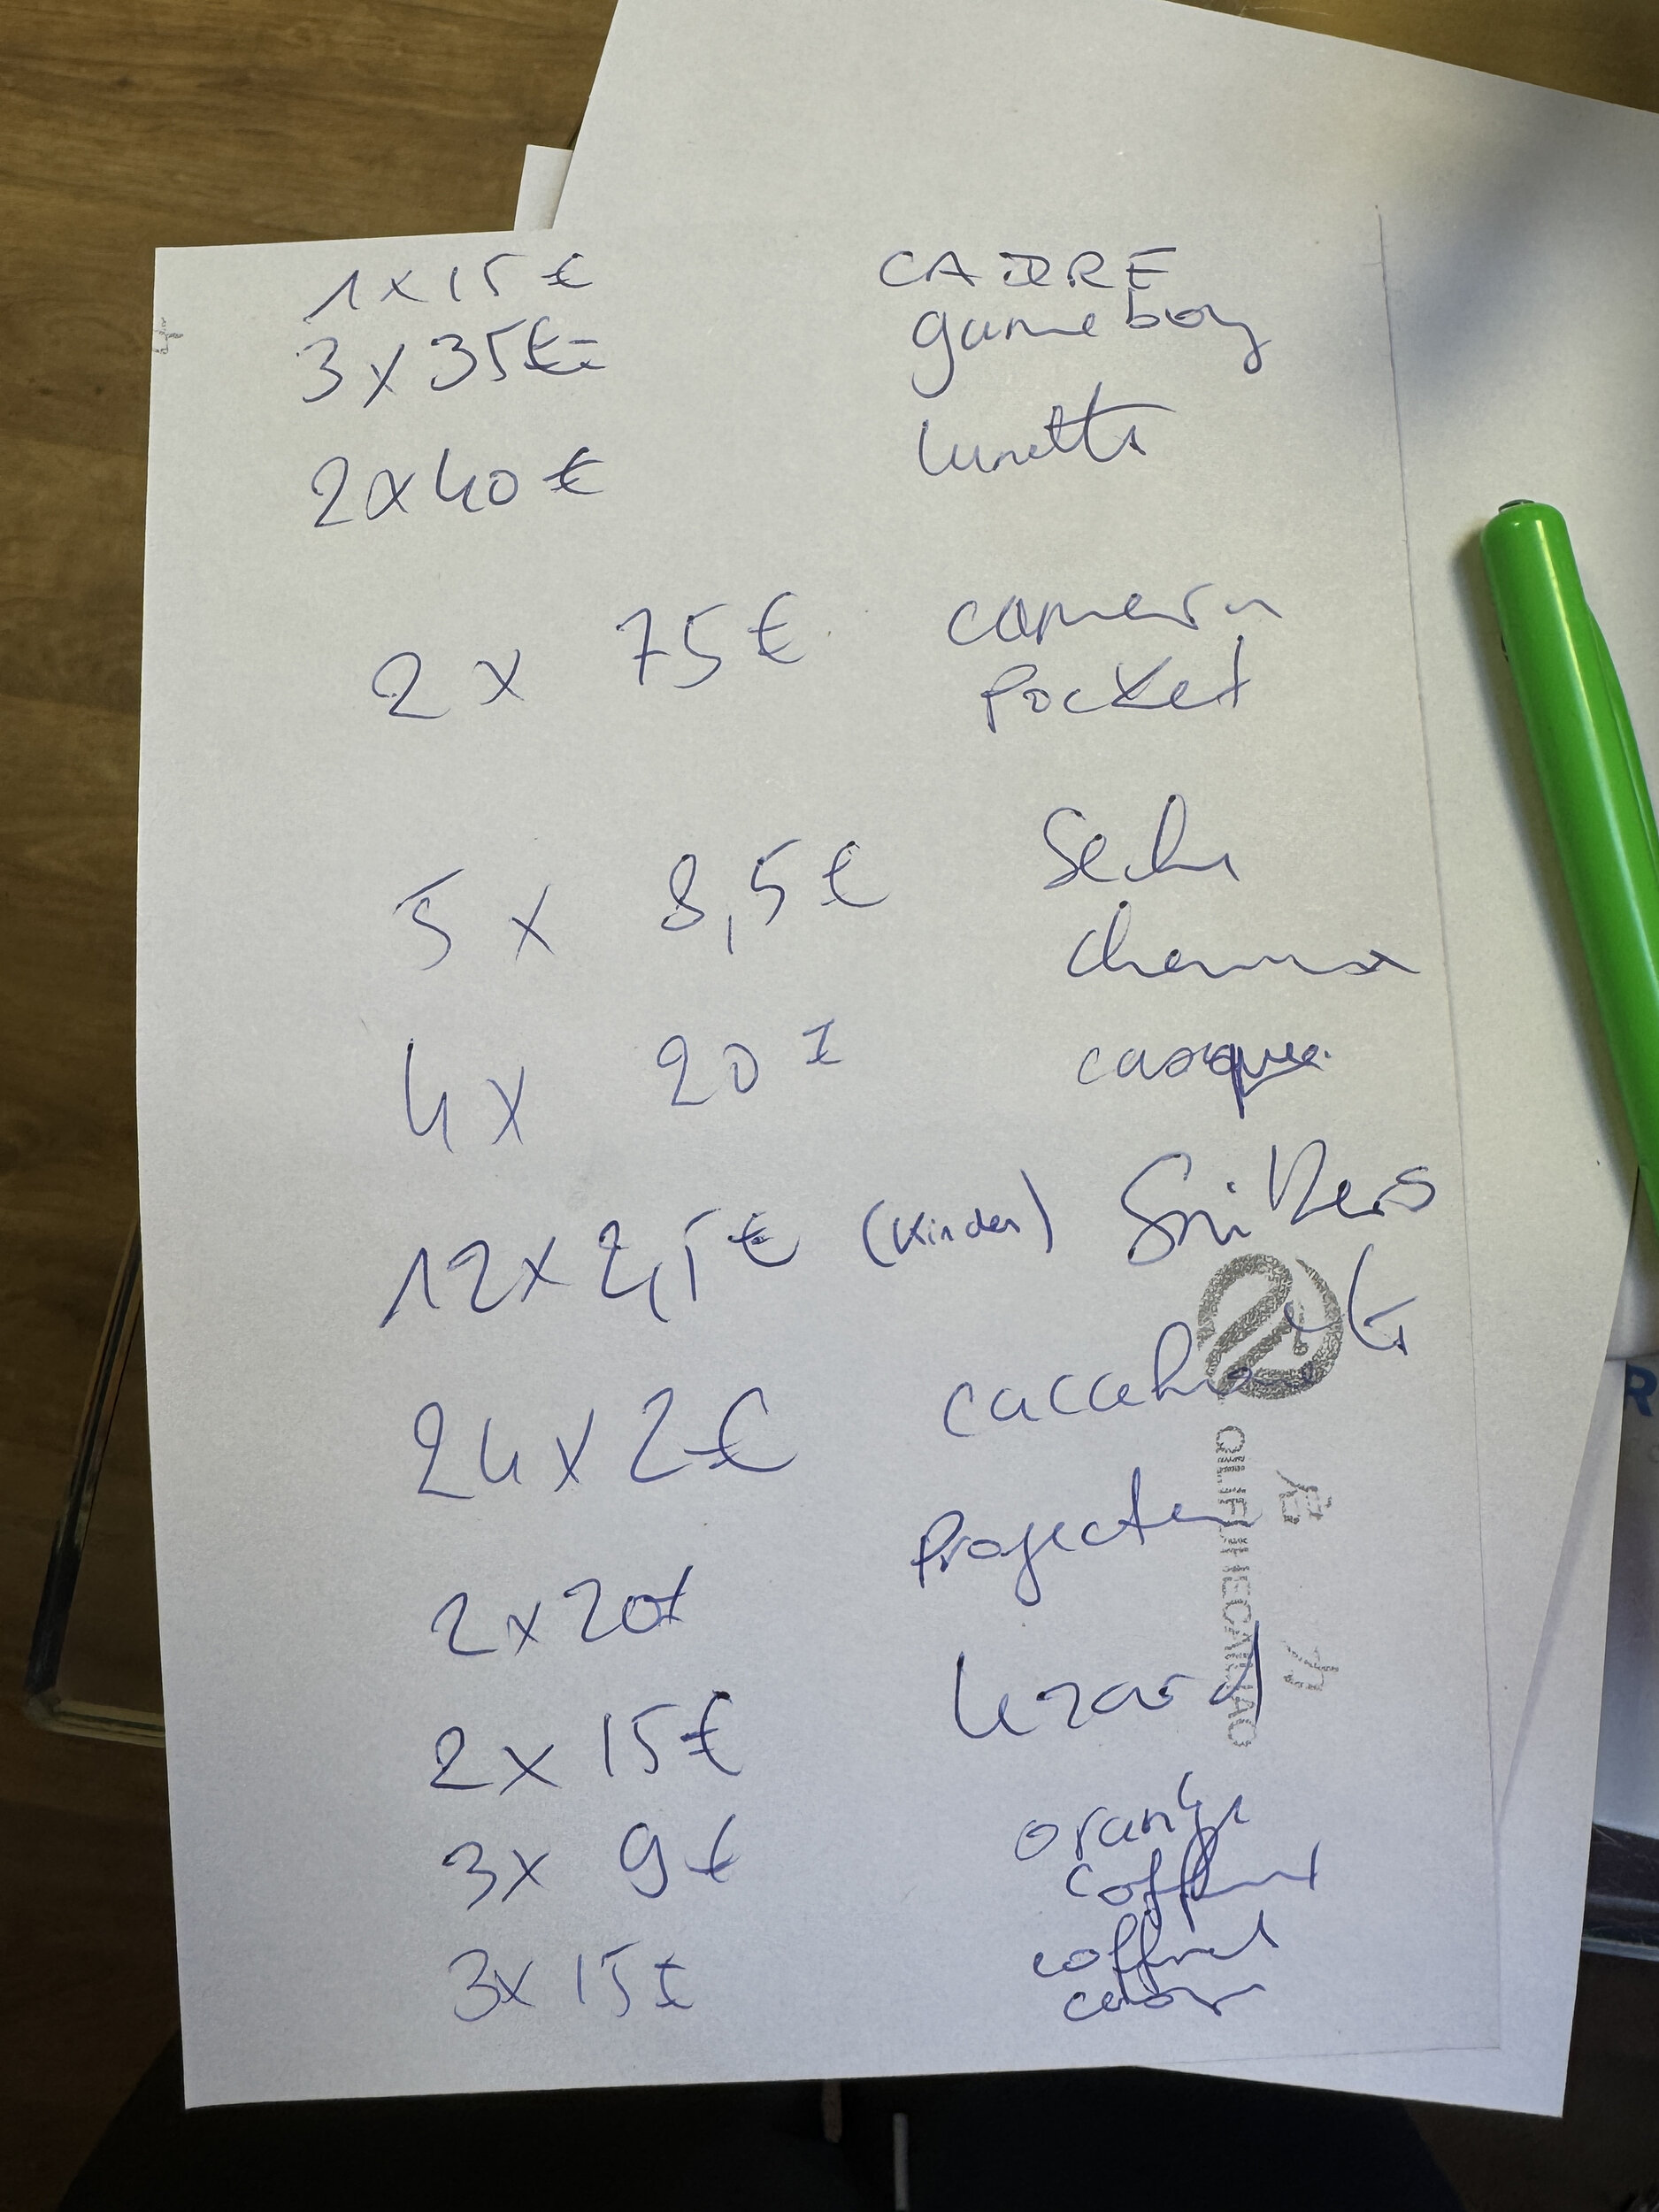 1x15€ CADRE
3x35€ gameboy
2x40€ lunette
2x 75€ camera
pocket
5x 8,5€ Seche
cheveux
4x 20€ casque
12x2,5€ (Kinder) Snikers
24x2€ cacahuete
2x20€ Projecteur
2x15€ lezard
3x 9€ orange
coffret
3x15€ coffret
QILIFEIHECAIHAO